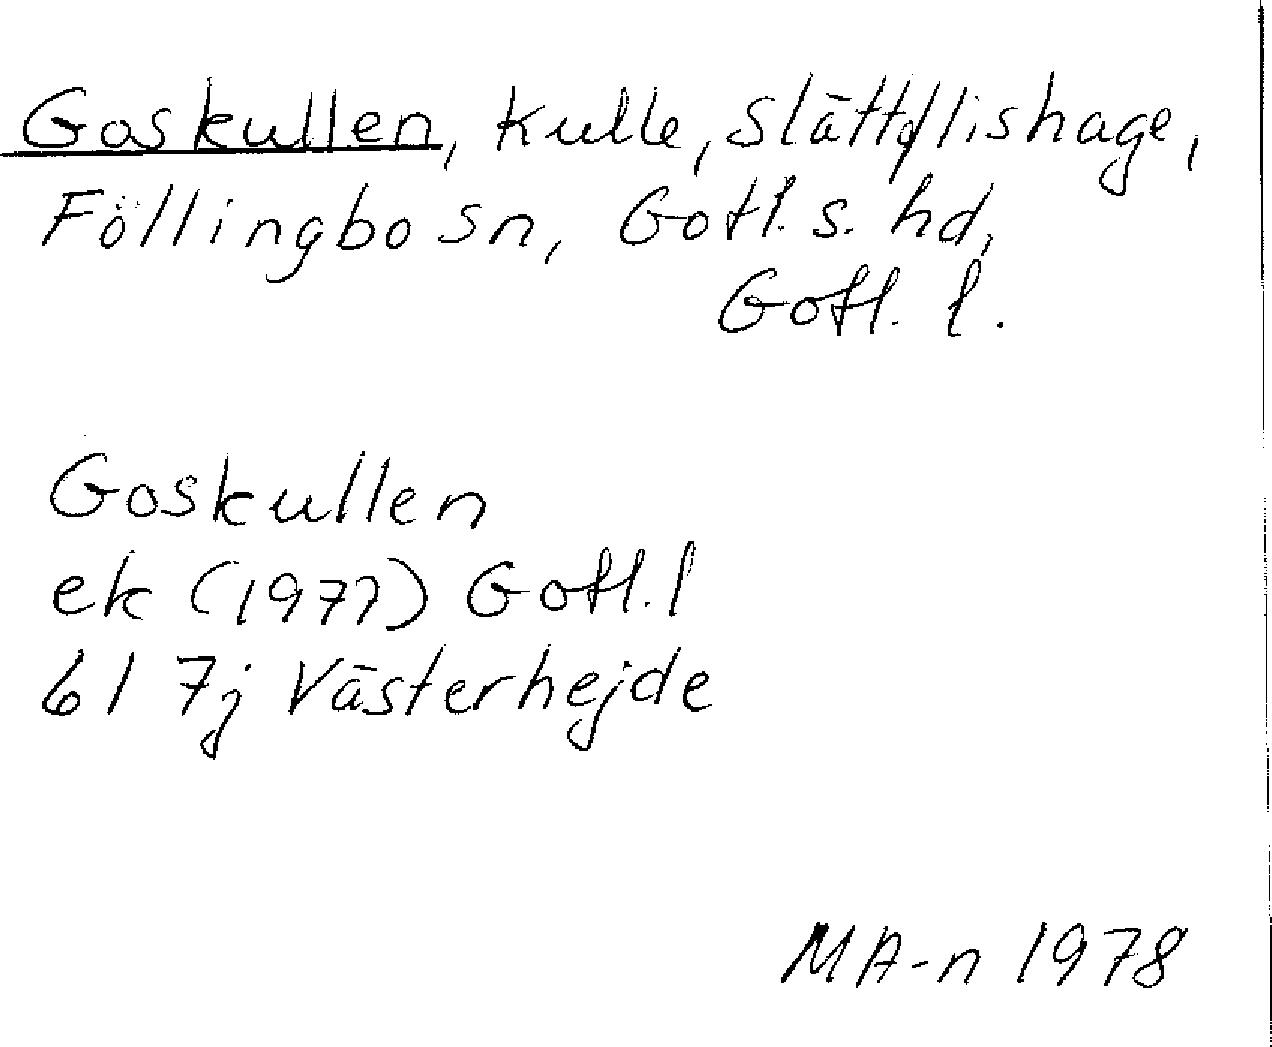 Goskullen, kulle, Slättflishage,
Föllingbo sn, Gotl. s. hd,
Gotl. l.
Goskullen
ek (1977) Gotl. l
61 7j Västerhejde
MA-n 1978